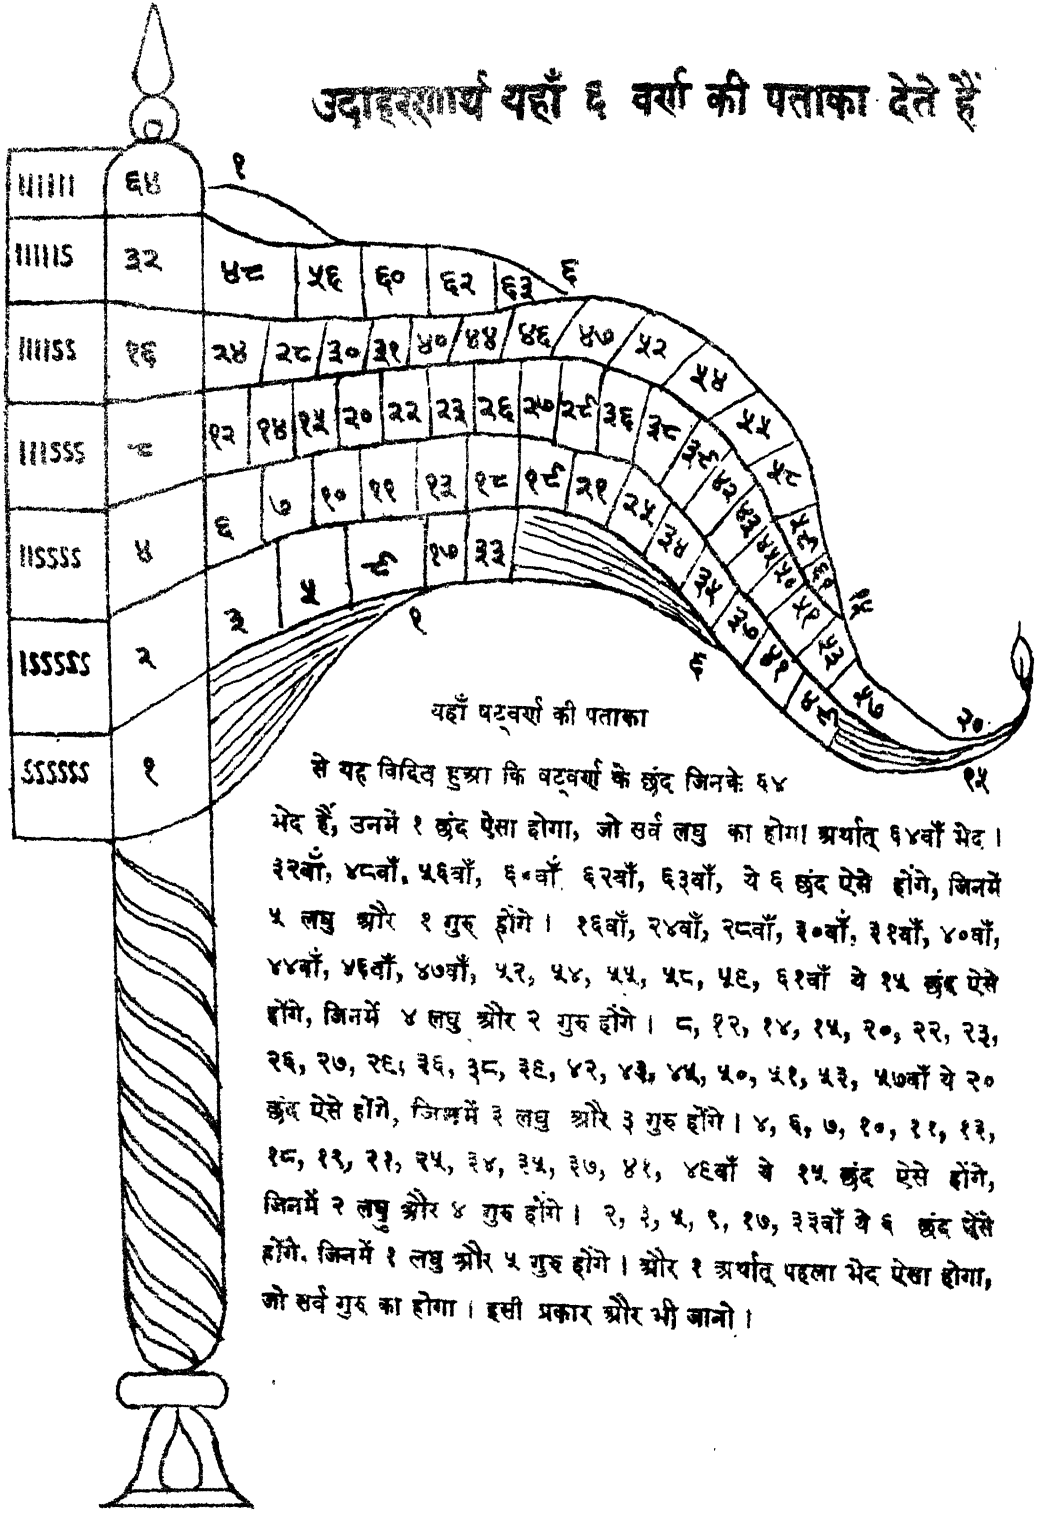 उदाहरणार्थ यहाँ ६ वर्ण की पताका देते हैं
१
।।।।।। ६४
।।।।।ऽ ३२ ४८ ५६ ६० ६२ ६३ ६
।।।।ऽऽ १६ २४ २८ ३० ३१ ४० ४४ ४६ ४७ ५२ ५४ ५५ ५८ ५९ ६१ १५
।।।ऽऽऽ ८ १२ १४ १५ २० २२ २३ २६ २७ २९ ३६ ३८ ३९ ४२ ४३ ४५ ५० ५१ ५३ ५७ २०
।।ऽऽऽऽ ४ ६ ७ १० ११ १३ १८ १९ २१ २५ ३४ ३५ ३७ ४१ ४९ १५
।ऽऽऽऽऽ २ ३ ५ ९ १७ ३३ ६
ऽऽऽऽऽऽ १ १
यहाँ षट्वर्ण की पताका
से यह विदित हुआ कि षट्वर्ण के छंद जिनके ६४
भेद हैं, उनमें १ छंद ऐसा होगा, जो सर्व लघु का होगा अर्थात् ६४वाँ भेद ।
३२वाँ, ४८वाँ, ५६वाँ, ६०वाँ ६२वाँ, ६३वाँ, ये ६ छंद ऐसे होंगे, जिनमें
५ लघु और १ गुरु होंगे । १६वाँ, २४वाँ, २८वाँ, ३०वाँ, ३१वाँ, ४०वाँ,
४४वाँ, ४६वाँ, ४७वाँ, ५२, ५४, ५५, ५८, ५९, ६१वाँ ये १५ छंद ऐसे
होंगे, जिनमें ४ लघु और २ गुरु होंगे । ८, १२, १४, १५, २०, २२, २३,
२६, २७, २९, ३६, ३८, ३९, ४२, ४३, ४५, ५०, ५१, ५३, ५७वाँ ये २०
छंद ऐसे होंगे, जिनमें ३ लघु और ३ गुरु होंगे । ४, ६, ७, १०, ११, १३,
१८, १९, २१, २५, ३४, ३५, ३७, ४१, ४९वाँ ये १५ छंद ऐसे होंगे,
जिनमें २ लघु और ४ गुरु होंगे । २, ३, ५, ९, १७, ३३वाँ ये ६ छंद ऐसे
होंगे, जिनमें १ लघु और ५ गुरु होंगे । और १ अर्थात् पहला भेद ऐसा होगा,
जो सर्व गुरु का होगा । इसी प्रकार और भी जानो ।